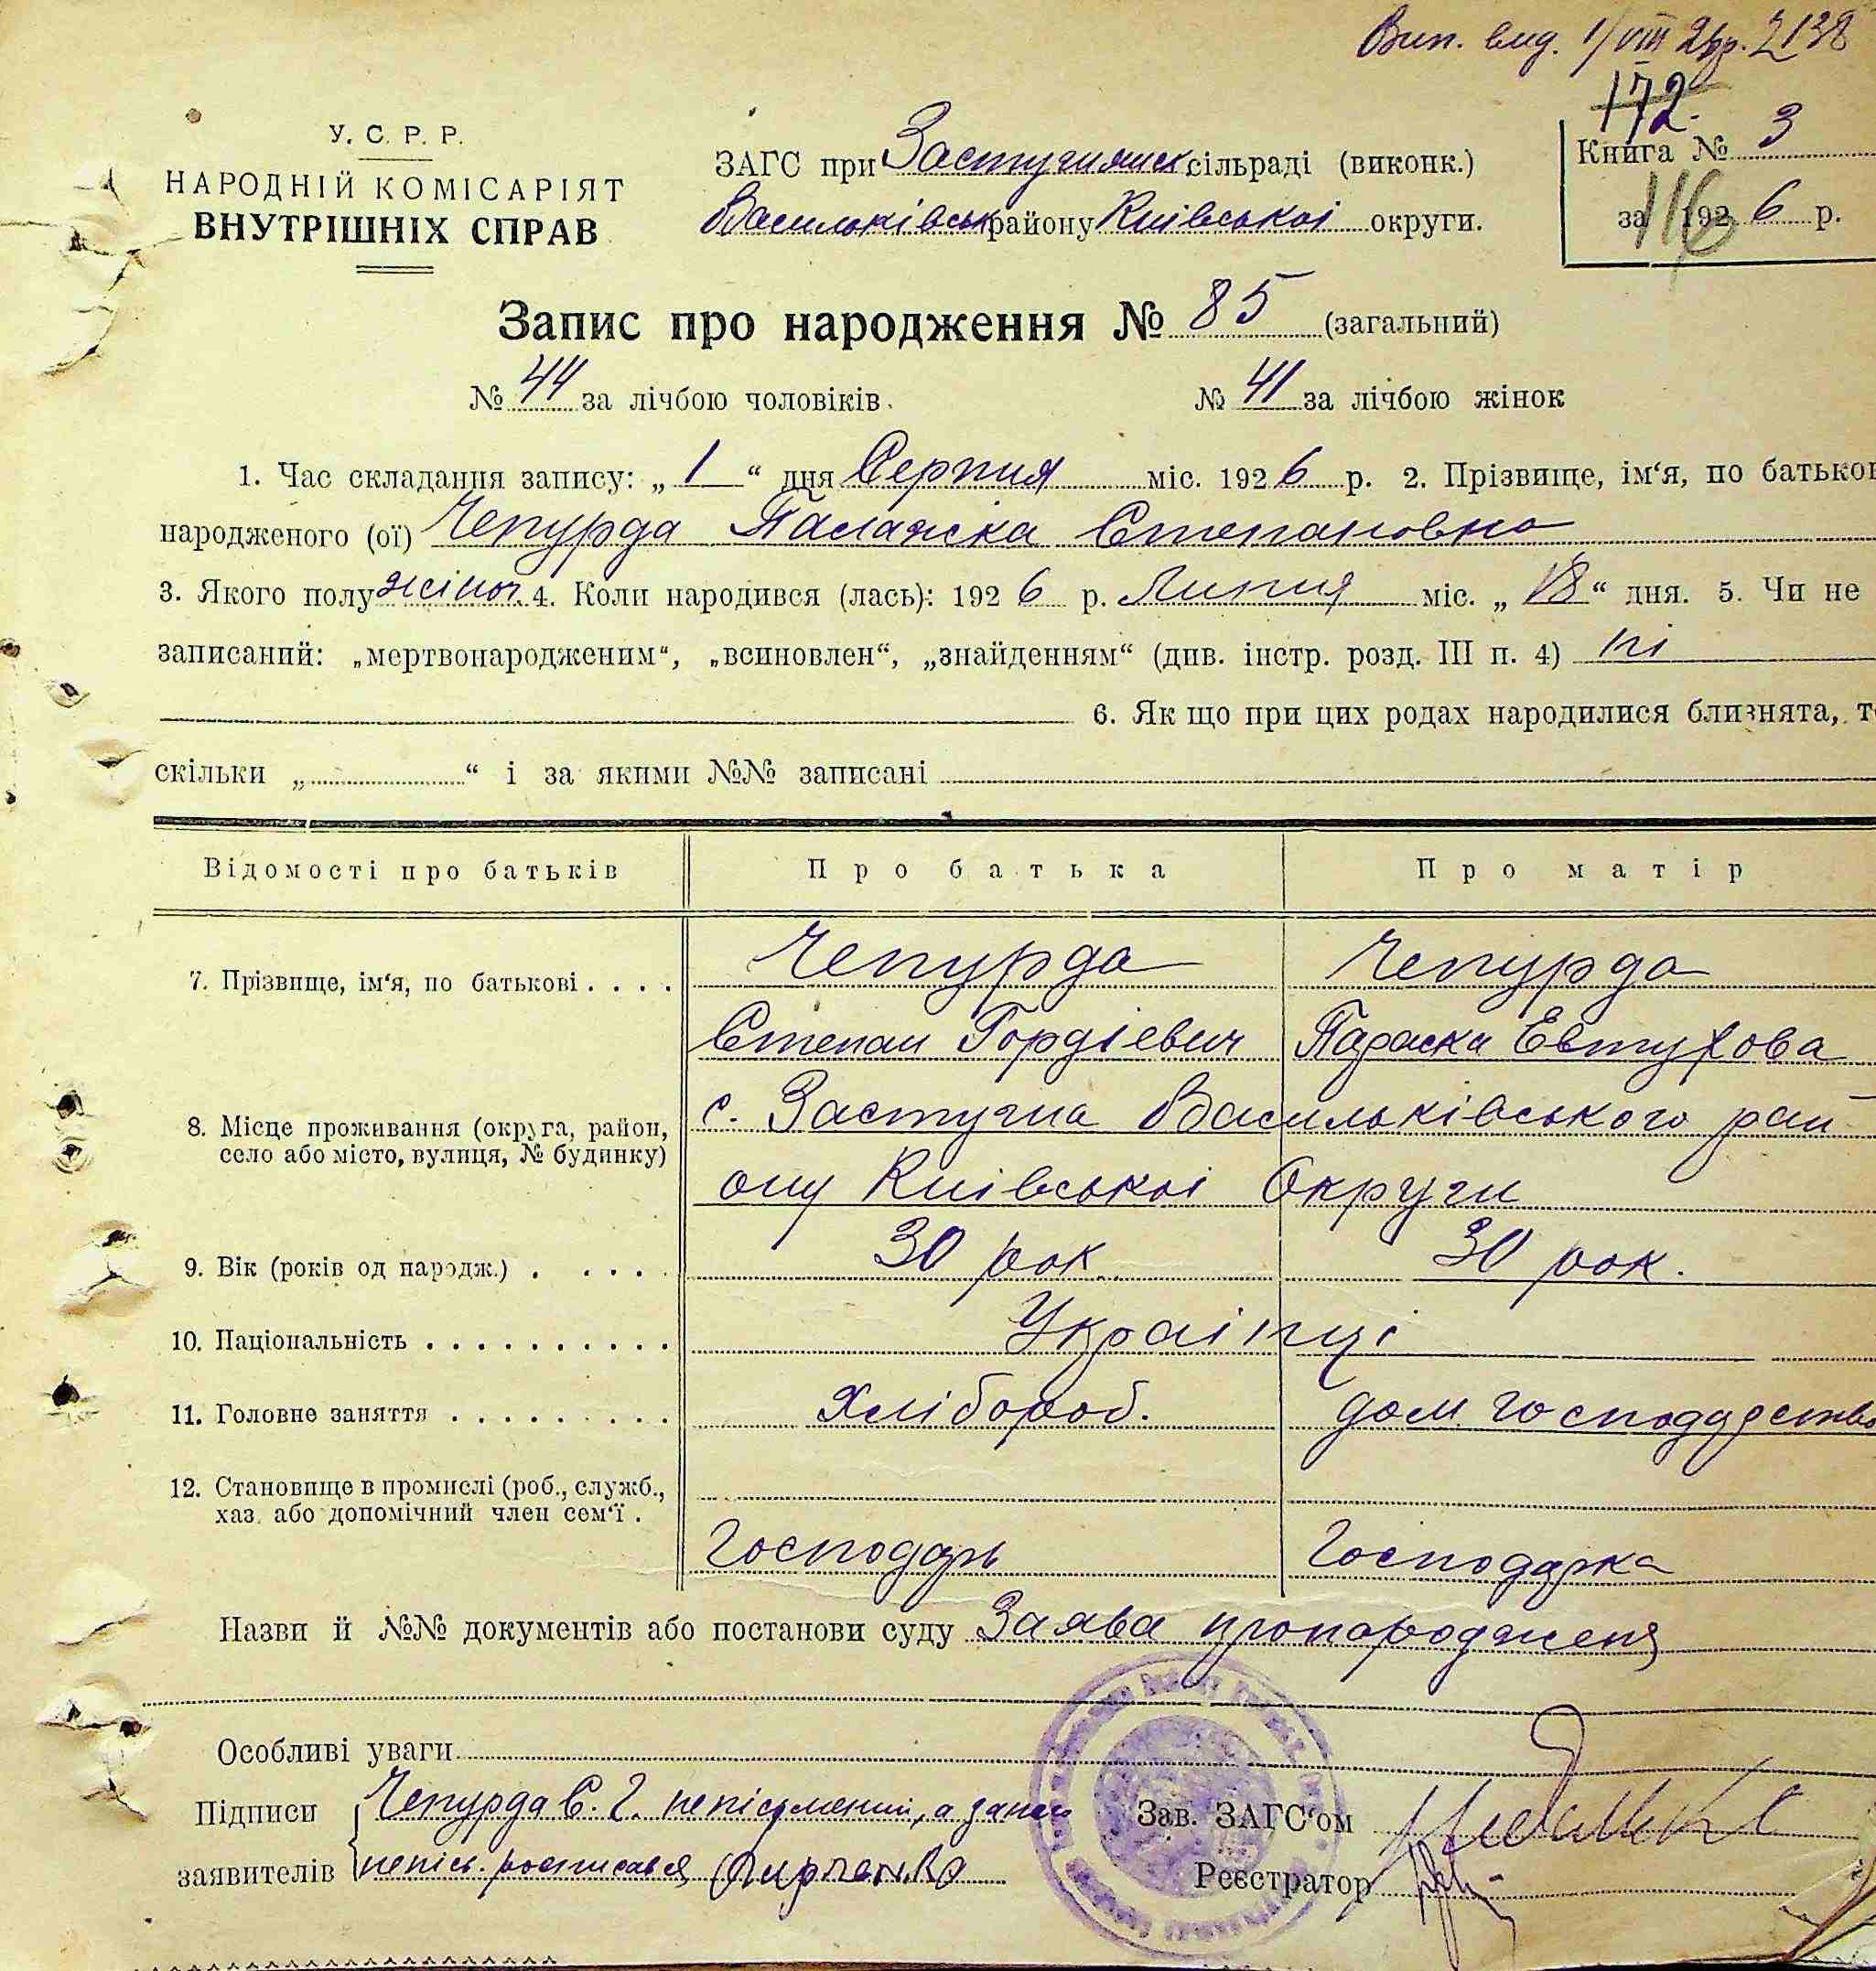 Вип. вид. 1/VIII 26р. 2138
172.
У. С. Р. Р.
НАРОДНІЙ КОМІСАРІЯТ
ВНУТРІШНІХ СПРАВ
ЗАГС при Застугнянськ сільраді (виконк.)
Васильківськ району Київської округи.
Книга № 3
за 1926 р.
116
Запис про народження № 85 (загальний)
№ 44 за лічбою чоловіків. № 41 за лічбою жінок
1. Час складання запису: „ 1 “ дня Серпня міс. 1926 р. 2. Прізвище, ім‘я, по батьков
народженого (ої) Чепурда Палажка Степановна
3. Якого полу жіноч. 4. Коли народився (лась): 1926 р. Липня міс. „ 18 “ дня. 5. Чи не
записаний: „мертвонародженим“, „всиновлен“, „знайденням“ (див. інстр. розд. III п. 4) ні
6. Як що при цих родах народилися близнята, т
скільки „ “ і за якими №№ записані
Відомості про батьків Про батька Про матір
7. Прізвище, ім‘я, по батькові . . . . Чепурда Чепурда
Степан Гордієвич Параска Евтухова
8. Місце проживання (округа, район, село або місто, вулиця, № будинку) с. Застугна Васильківського рай
ону Київської Округи
9. Вік (років од народж.) . . . . . 30 рок. 30 рок.
10. Національність . . . . . . . . . . Українці
11. Головне заняття . . . . . . . . . Хлібороб. дом. господарство
12. Становище в промислі (роб., служб.,
хаз. або допомічний член сем‘ї .
Господарь Господарка
Назви й №№ документів або постанови суду Заява пронародженя
Особливі уваги
Підписи Чепурда С. Г. непісьмений, а за
заявителів непісь. росписався
Зав. ЗАГС‘ом
Реєстратор